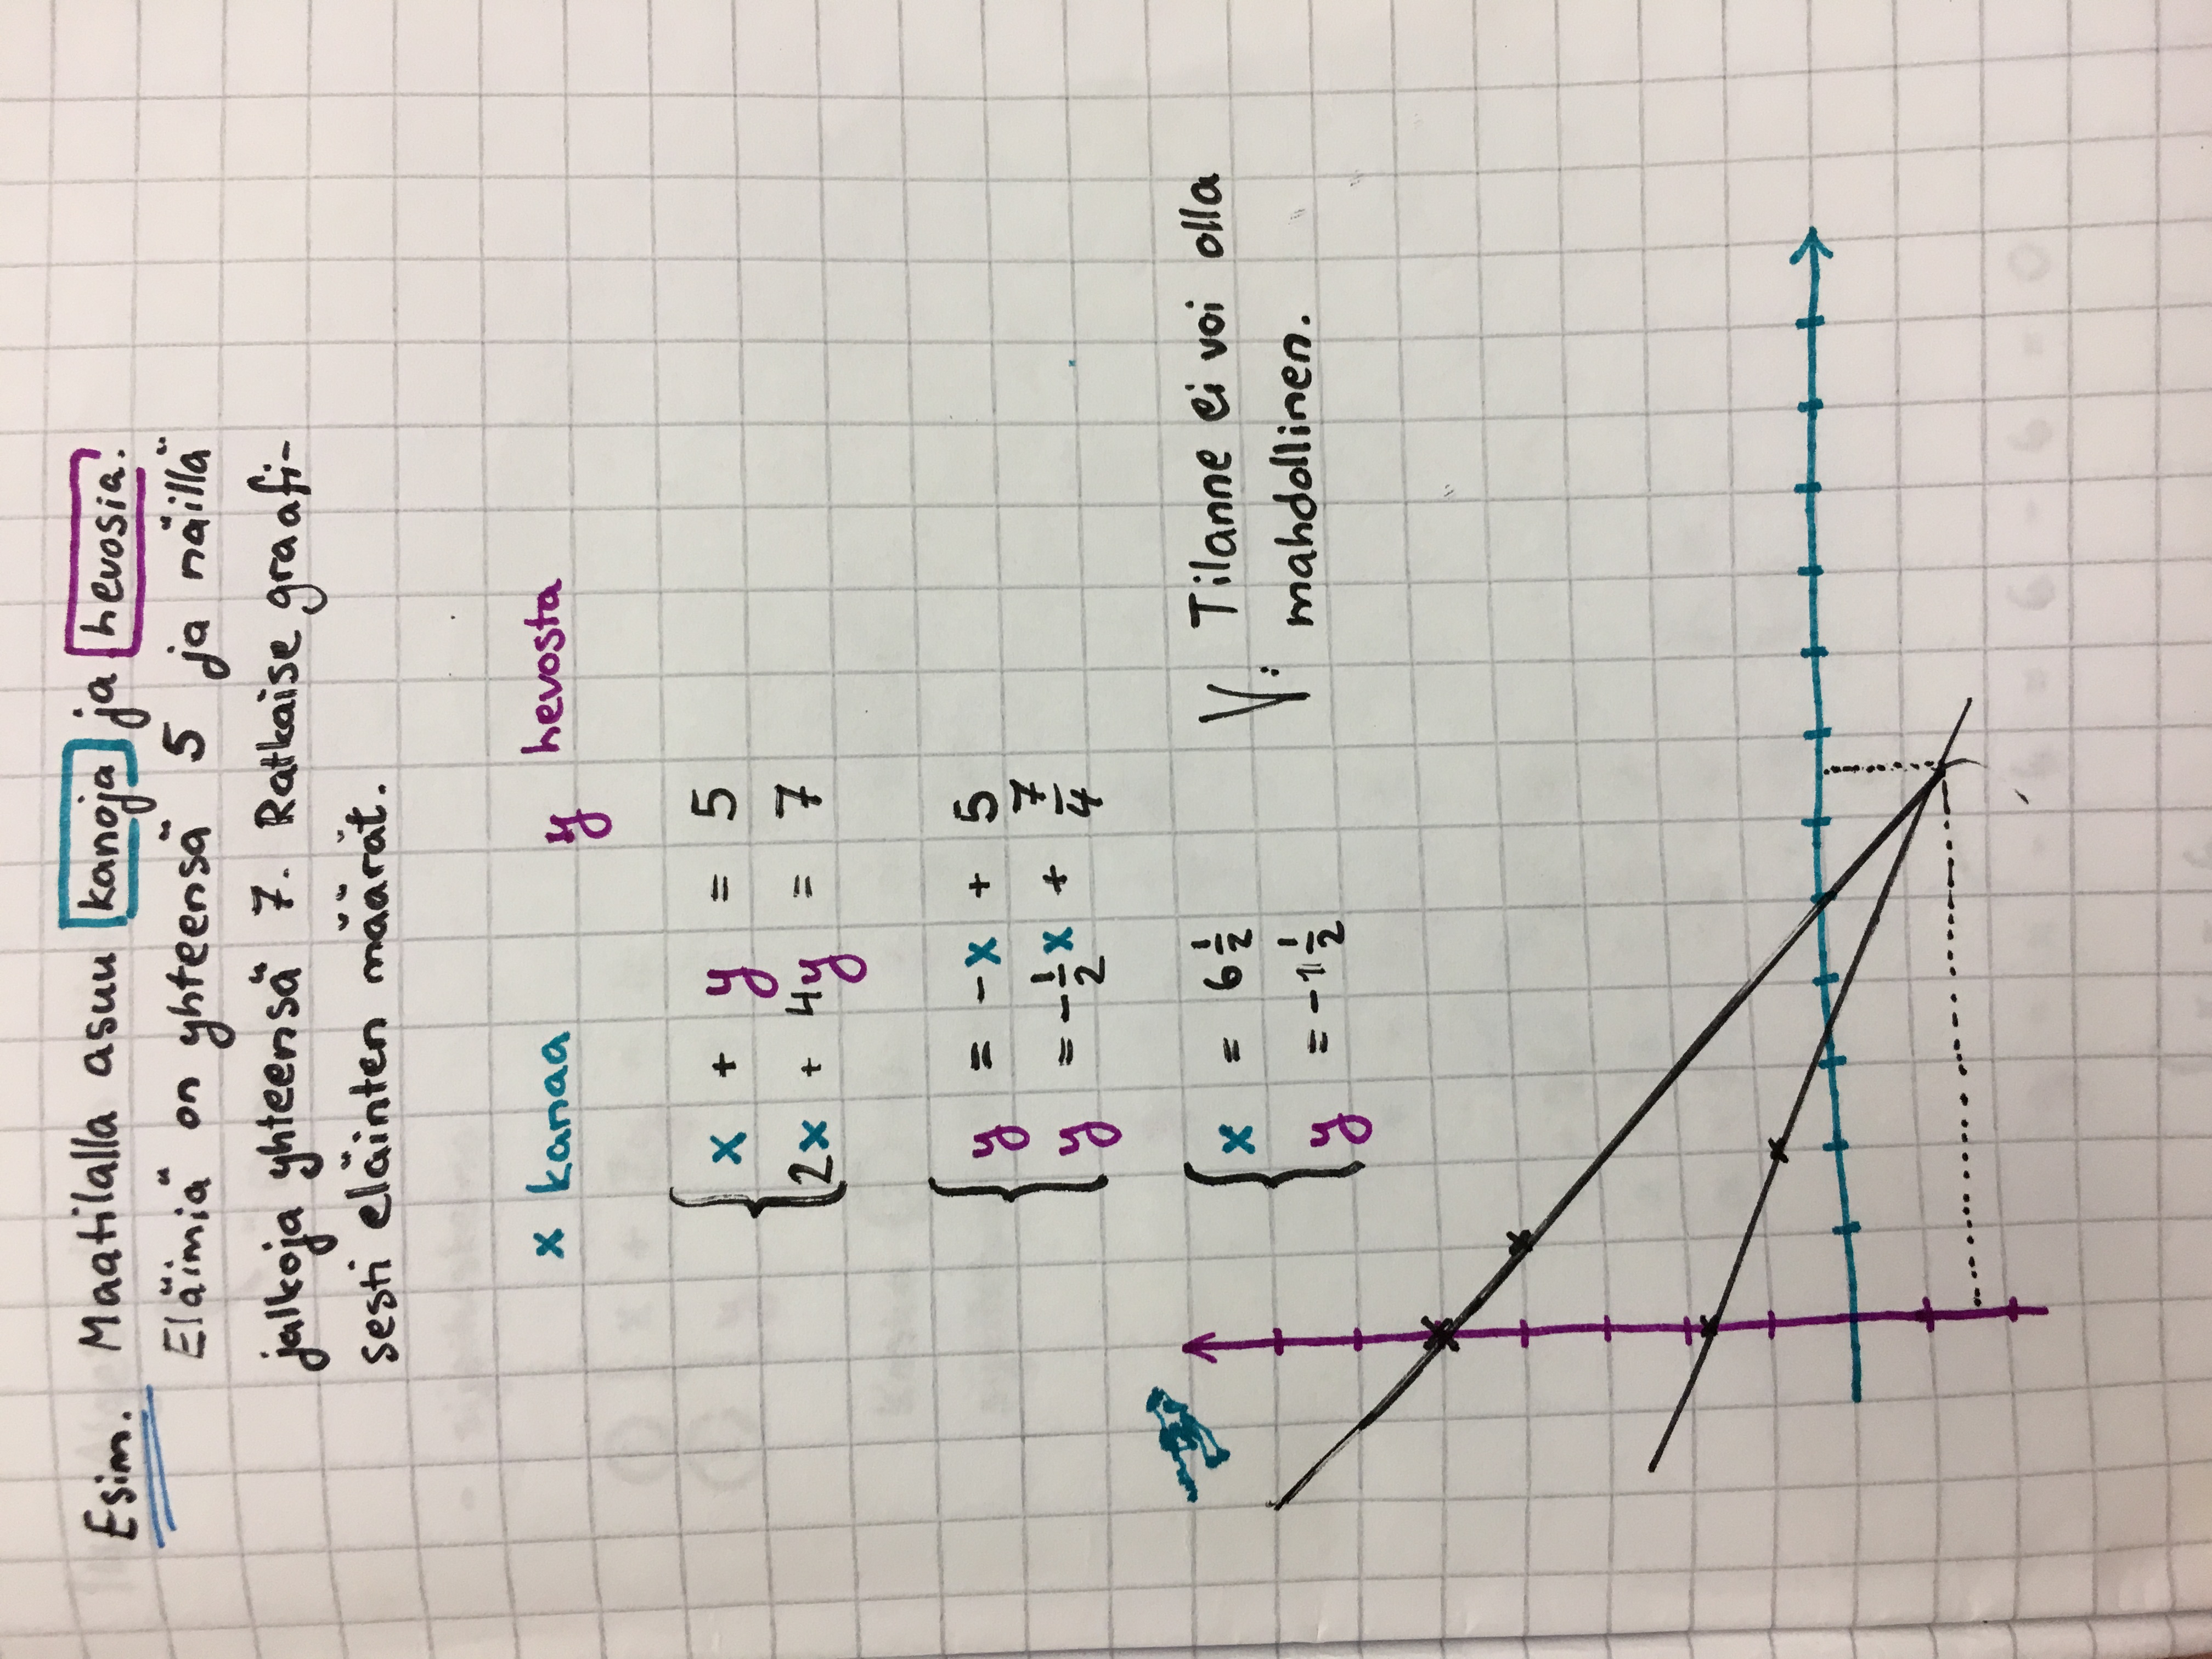 Esim. Maatilalla asuu kanoja ja hevosia.
Eläimiä on yhteensä 5 ja näillä
jalkoja yhteensä 7. Ratkaise graafi-
sesti eläinten määrät.
x kanaa y hevosta
x + y = 5
2x + 4y = 7
y = -x + 5
y = -1/2x + 7/4
x = 6 1/2
y = -1 1/2
V: Tilanne ei voi olla
mahdollinen.